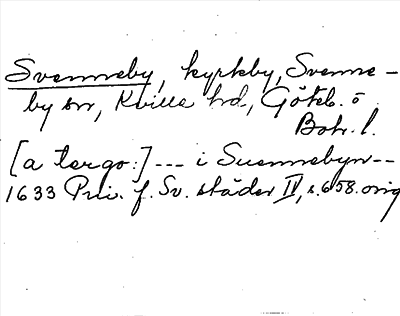 Svenneby, kyrkby, Svenne-
by sn, Kville hd, Göteb. o
Boh. l.
[a tergo:] --- i Suennebyn--
1633 Priv. f. Sv. städer IV, s. 658. orig